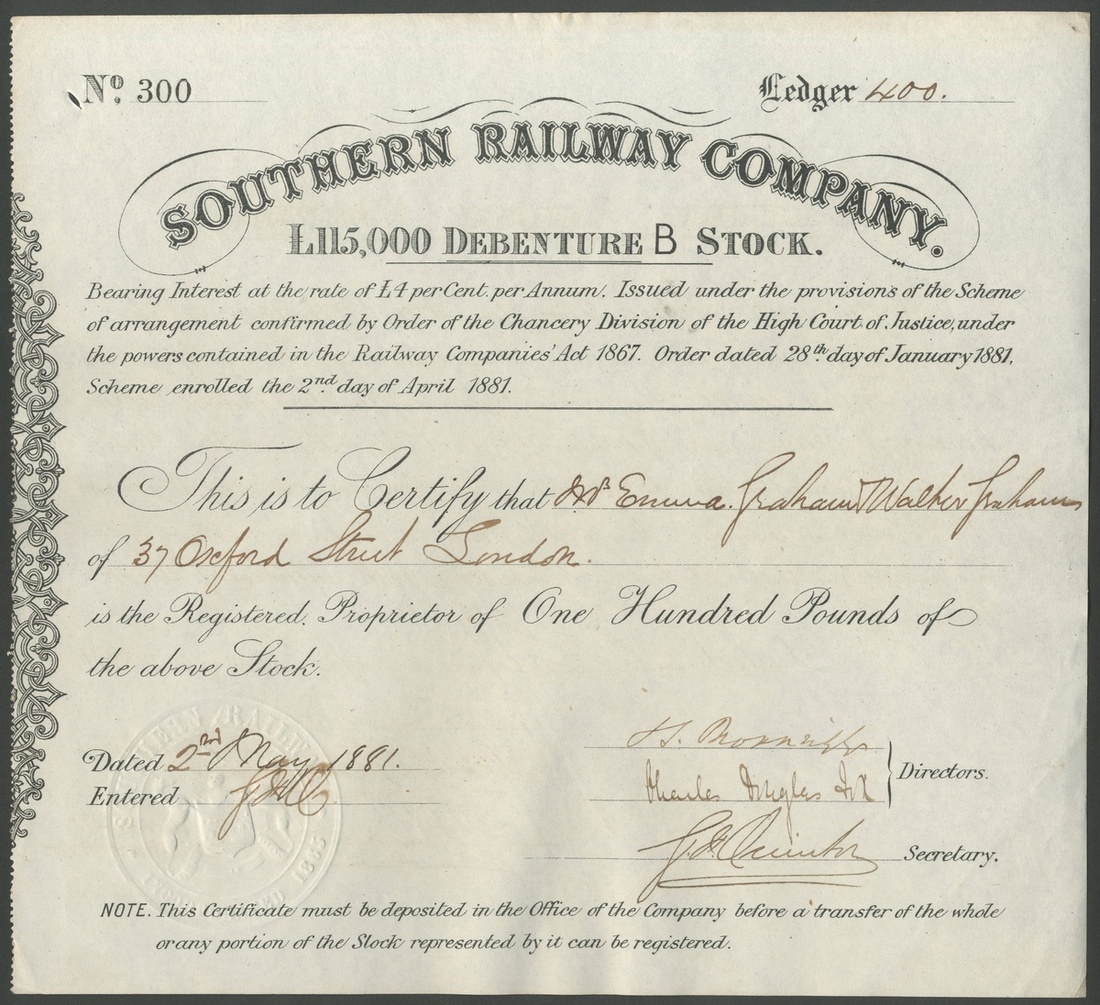 No. 300
Ledger 400.
SOUTHERN RAILWAY COMPANY.
£115,000 DEBENTURE B STOCK.
Bearing Interest at the rate of £4 per Cent. per Annum. Issued under the provisions of the Scheme
of arrangement confirmed by Order of the Chancery Division of the High Court of Justice, under
the powers contained in the Railway Companies' Act 1867. Order dated 28th day of January 1881,
Scheme enrolled the 2nd day of April 1881.
This is to Certify that Emma Graham Walker Graham
of 37 Oxford Street London.
is the Registered Proprietor of One Hundred Pounds of
the above Stock.
Dated 2nd May 1881.
Entered
Charles Douglas Fox
Directors.
Secretary.
SOUTHERN RAILWAY
1865
NOTE. This Certificate must be deposited in the Office of the Company before a transfer of the whole
or any portion of the Stock represented by it can be registered.